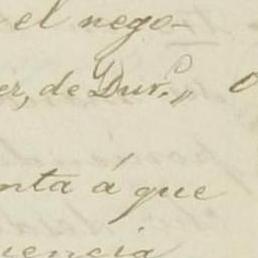 el nego-
er, de Dur.º,,
nta á que
uencia